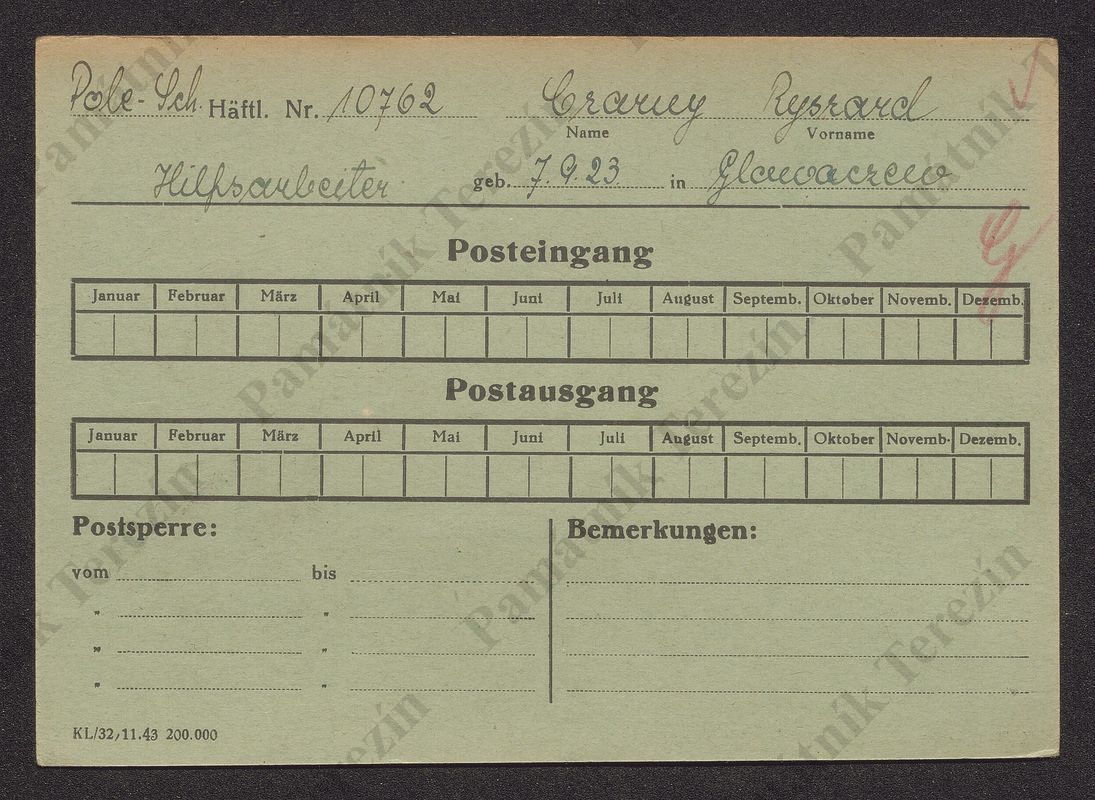 Pole-Sch. Häftl. Nr. 10762 Czarny Ryszard
Name Vorname
Hilfsarbeiter geb. 7.9.23 in Glowaczew
Posteingang
Januar Februar März April Mai Juni Juli August Septemb. Oktober Novemb. Dezemb.
Postausgang
Januar Februar März April Mai Juni Juli August Septemb. Oktober Novemb. Dezemb.
Postsperre: Bemerkungen:
vom bis
" "
" "
" "
KL/32, 11.43 200.000
Památník Terezín